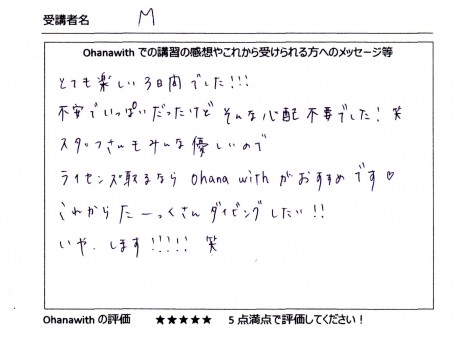 受講者名 M
Ohanawith での講習の感想やこれから受けられる方へのメッセージ等
とても楽しい3日間でした!!!
不安でいっぱいだったけど そんな心配不要でした! 笑
スタッフさんもみんな優しいので
ライセンス取るなら Ohana with がおすすめです♡
これからたーっくさんダイビングしたい!!
いや、します!!!!! 笑
Ohanawith の評価 ★★★★★ 5点満点で評価してください!